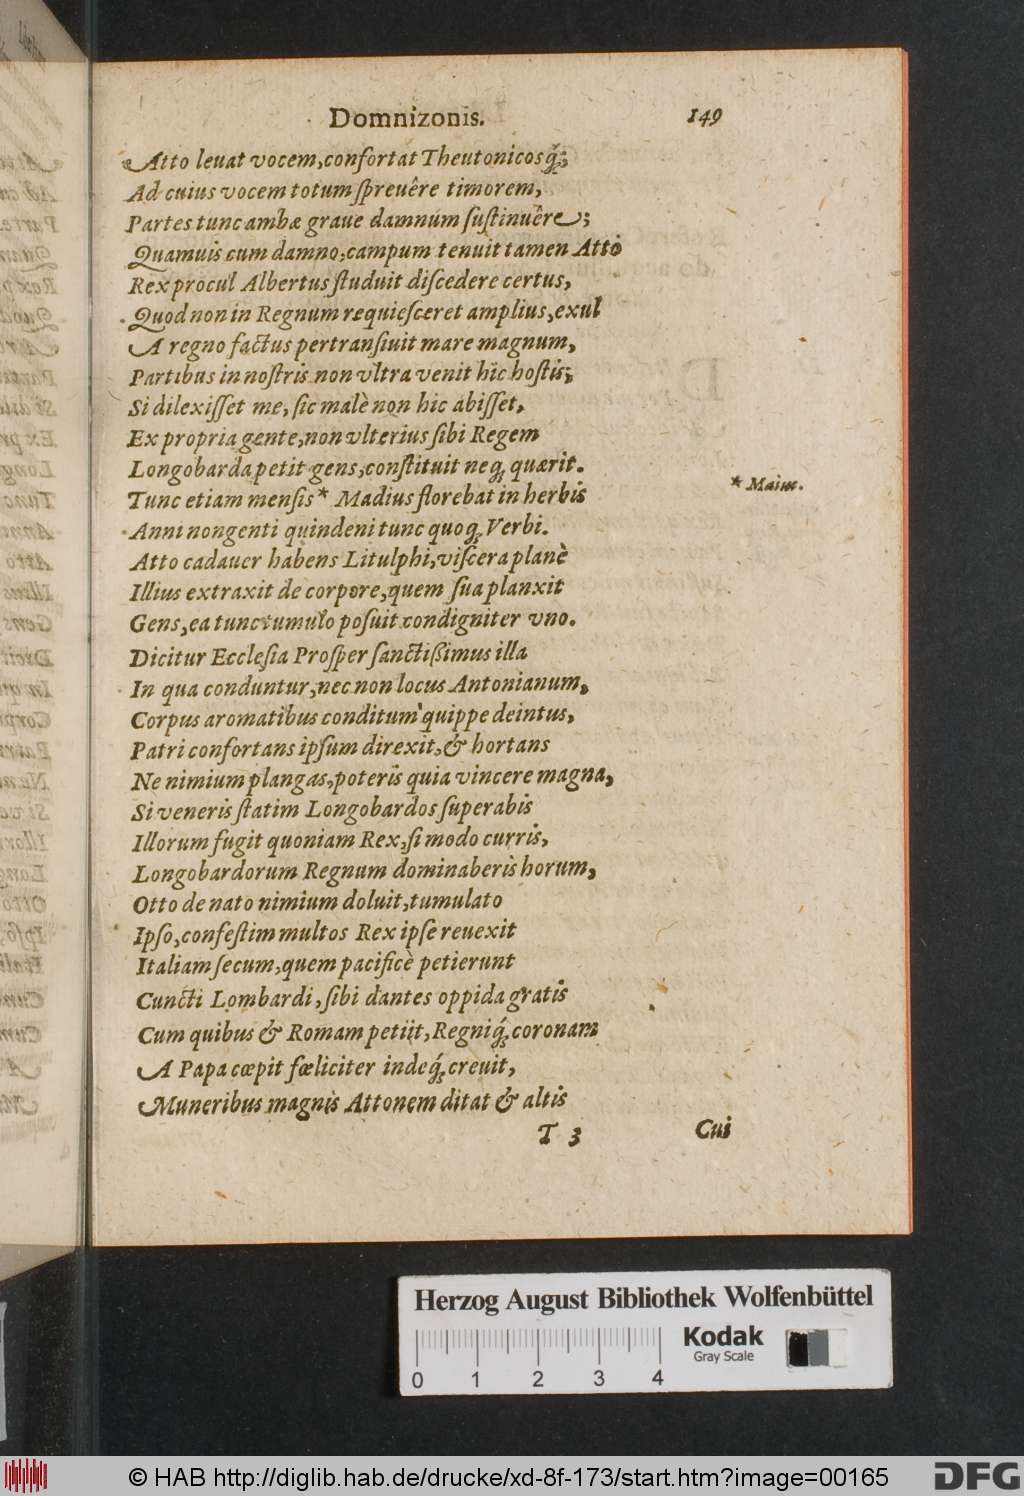 Domnizonis. 149
Atto leuat vocem, confortat Theutonicosq́;
Ad cuius vocem totum ſpreuêre timorem,
Partes tunc ambæ graue damnum ſuſtinuêre;
Quamuis cum damno, campum tenuit tamen Atto
Rex procul Albertus ſtuduit diſcedere certus,
Quod non in Regnum requieſceret amplius, exul
A regno factus pertranſiuit mare magnum,
Partibus in noſtris non vltra venit hic hoſtis;
Si dilexiſſet me, ſic malè non hic abiſſet,
Ex propria gente, non vlterius ſibi Regem
Longobarda petit gens, conſtituit neq; quærit.
Tunc etiam menſis * Madius florebat in herbis
* Maius.
Anni nongenti quindeni tunc quoq; Verbi.
Atto cadauer habens Litulphi, viſcera planè
Illius extraxit de corpore, quem ſua planxit
Gens, ea tunc tumulo poſuit condigniter vno.
Dicitur Eccleſia Proſper ſanctißimus illa
In qua conduntur, nec non locus Antonianum,
Corpus aromatibus conditum quippe deintus,
Patri confortans ipſum direxit, & hortans
Ne nimium plangas, poteris quia vincere magna,
Si veneris ſtatim Longobardos ſuperabis
Illorum fugit quoniam Rex, ſi modo curris,
Longobardorum Regnum dominaberis horum,
Otto de nato nimium doluit, tumulato
Ipſo, confeſtim multos Rex ipſe reuexit
Italiam ſecum, quem pacificè petierunt
Cuncti Lombardi, ſibi dantes oppida gratis
Cum quibus & Romam petijt, Regniq́; coronam
A Papa cœpit fœliciter indeq́; creuit,
Muneribus magnis Attonem ditat & altis
T 3 Cui
Herzog August Bibliothek Wolfenbüttel
Kodak
Gray Scale
0 1 2 3 4
© HAB http://diglib.hab.de/drucke/xd-8f-173/start.htm?image=00165
DFG